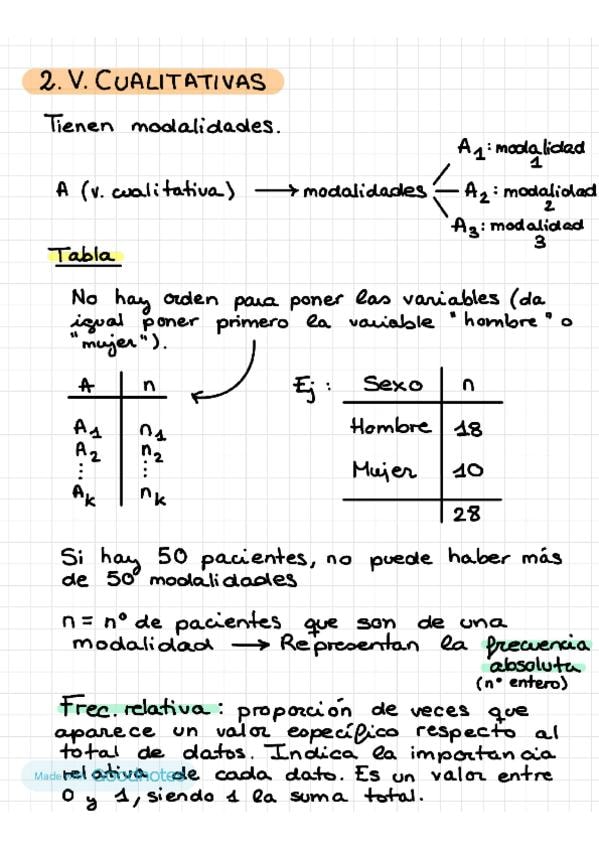 2. V. CUALITATIVAS
Tienen modalidades.
A (v. cualitativa) → modalidades
A1: modalidad 1
A2: modalidad 2
A3: modalidad 3
Tabla
No hay orden para poner las variables (da
igual poner primero la variable "hombre" o
"mujer").
A n
A1 n1
A2 n2
⋮ ⋮
Ak nk
Ej: Sexo n
Hombre 18
Mujer 10
28
Si hay 50 pacientes, no puede haber más
de 50 modalidades
n = nº de pacientes que son de una
modalidad → Representan la frecuencia
absoluta
(nº entero)
Frec. relativa: proporción de veces que
aparece un valor específico respecto al
total de datos. Indica la importancia
relativa de cada dato. Es un valor entre
0 y 1, siendo 1 la suma total.
Made Goodnotes